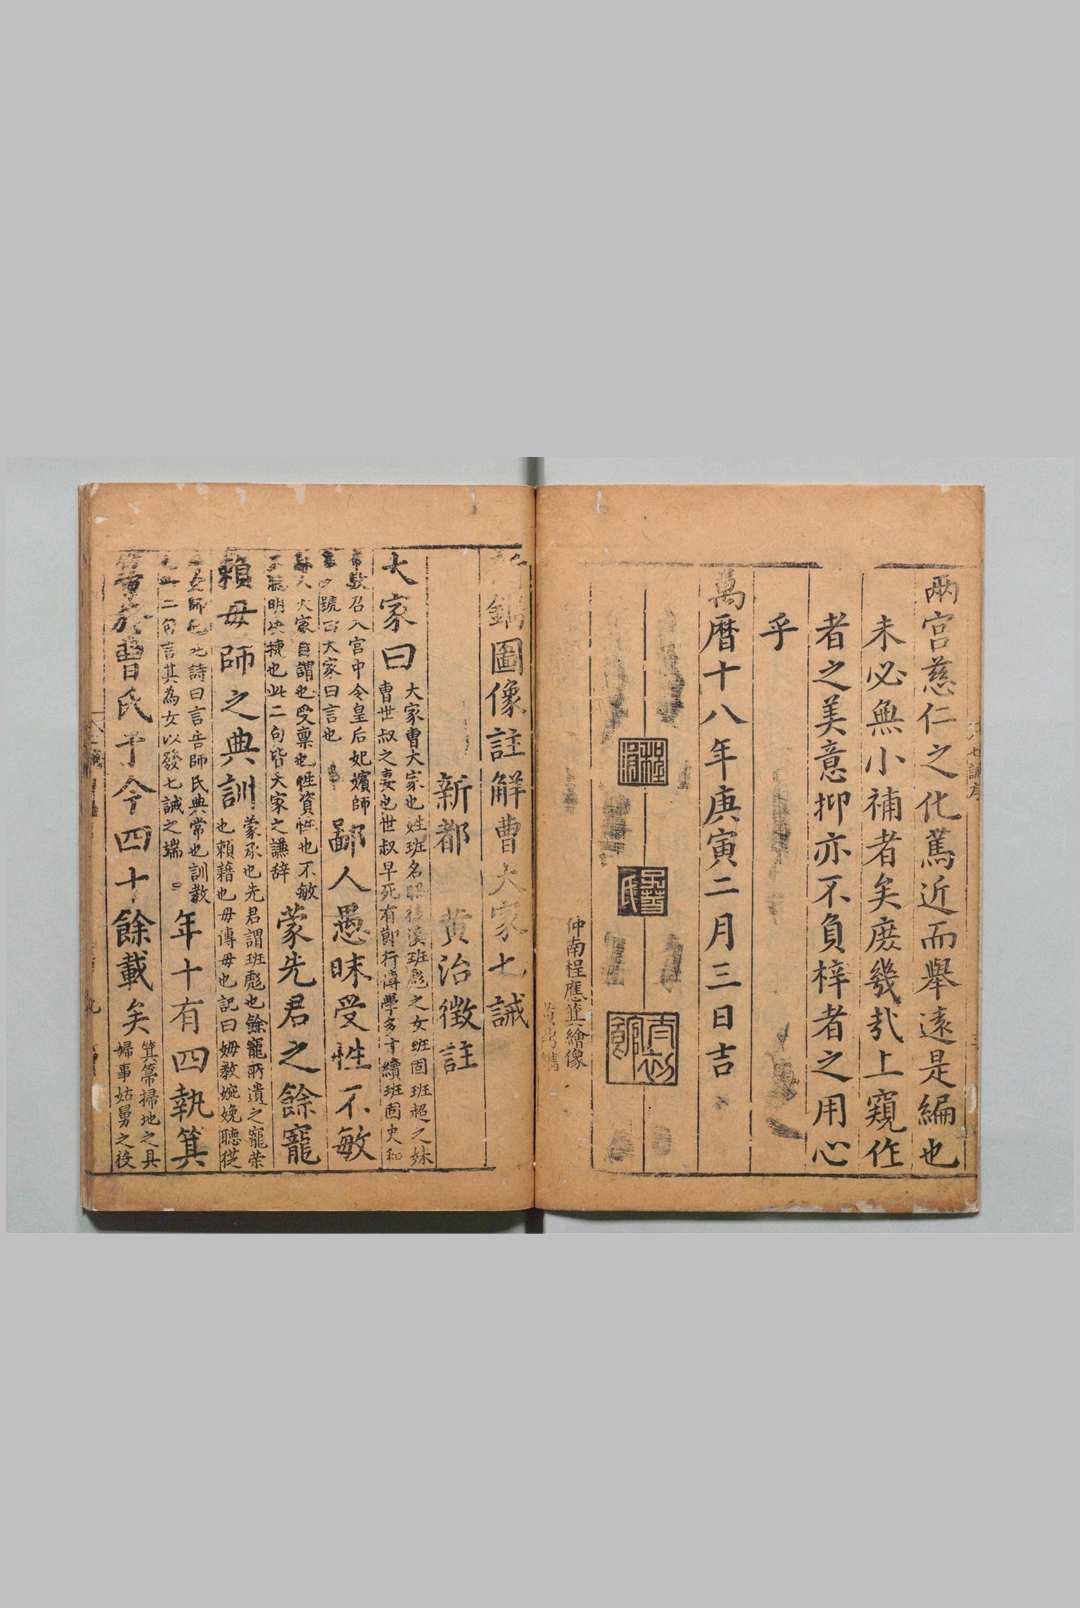 兩宮慈仁之化篤近而舉遠是編也
未必無小補者矣庶幾哉上窺作
者之美意抑亦不負梓者之用心
乎
萬曆十八年庚寅二月三日吉
仲南程應箕繪像
鐫圖像註解曹大家七誡
新都 黃治徵註
大家曰
大家曹大家也姓班名昭後漢班彪之女班固班超之妹
曹世叔之妻也世叔早死有節行博學多才續班固史和
帝數召入宮中令皇后妃嬪師
號曰大家曰言也
鄙人愚昧受性不敏
人大家自謂也受稟也性資性也不敏
不聰明快捷也此二句皆大家之謙辭
蒙先君之餘寵
賴母師之典訓
蒙承也先君謂班彪也餘寵所遺之寵榮
也賴藉也母傅母也記曰姆教婉娩聽從
師也詩曰言告師氏典常也訓教
此二句言其為女以發七誡之端
年十有四執箕
箒於曹氏于今四十餘載矣
箕箒掃地之具
婦事姑舅之役